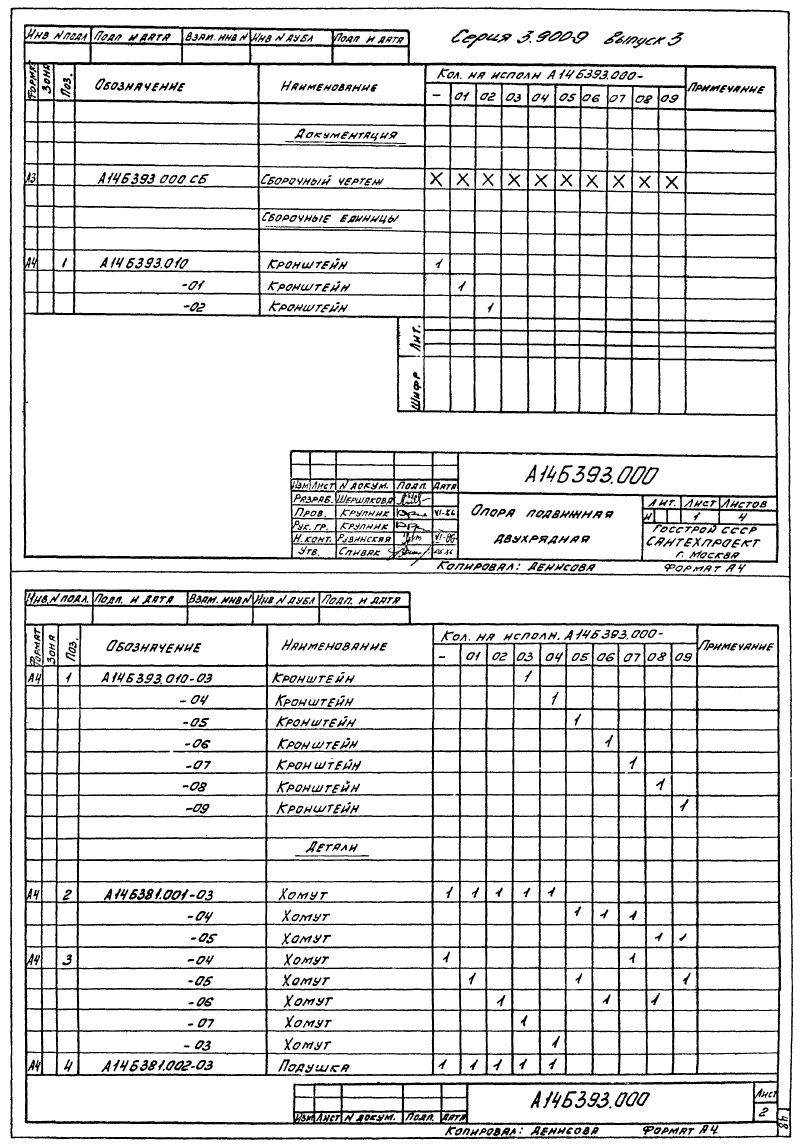 Инв N подл Подп и дата Взам. инв N Инв N дубл Подп и дата
Серия 3.900-9 выпуск 3
Формат Зона Поз. Обозначение Наименование Кол. на исполн А14Б393.000- Примечание
- 01 02 03 04 05 06 07 08 09
Документация
А3 А14Б393.000 СБ Сборочный чертеж X X X X X X X X X X
Сборочные единицы
А4 1 А14Б393.010 Кронштейн 1
-01 Кронштейн 1
-02 Кронштейн 1
Лит.
Шифр
А14Б393.000
Изм Лист N докум. Подп. Дата
Разраб. Шершакова
Пров. Крупник VI-86
Рук. гр. Крупник
Н.конт. Рувинская VI-86
Утв. Спивак
Опора подвижная
двухрядная
Лит. Лист Листов
И 1 4
Госстрой СССР
Сантехпроект
г. Москва
Копировал: Денисова Формат А4
Инв. N подл. Подп. и дата Взам. инв N Инв N дубл Подп. и дата
Формат Зона Поз. Обозначение Наименование Кол. на исполн. А14Б393.000- Примечание
- 01 02 03 04 05 06 07 08 09
А4 1 А14Б393.010-03 Кронштейн 1
-04 Кронштейн 1
-05 Кронштейн 1
-06 Кронштейн 1
-07 Кронштейн 1
-08 Кронштейн 1
-09 Кронштейн 1
Детали
А4 2 А14Б381.001-03 Хомут 1 1 1 1 1
-04 Хомут 1 1 1
-05 Хомут 1 1
А4 3 -04 Хомут 1 1
-05 Хомут 1 1 1
-06 Хомут 1 1 1
-07 Хомут 1
-03 Хомут 1
А4 4 А14Б381.002-03 Подушка 1 1 1 1 1
Изм Лист N докум. Подп. Дата
А14Б393.000
Лист
2
Копировал: Денисова Формат А4
48